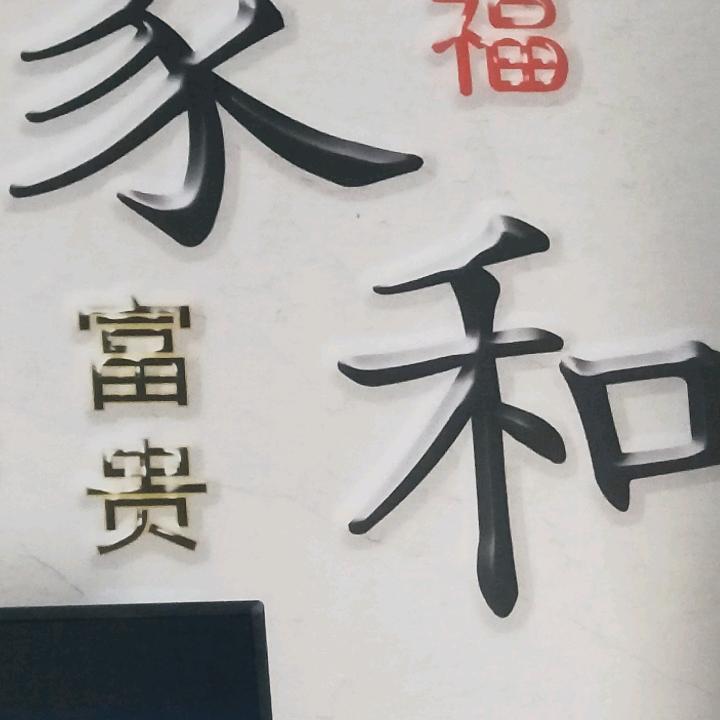 家和
福
富贵